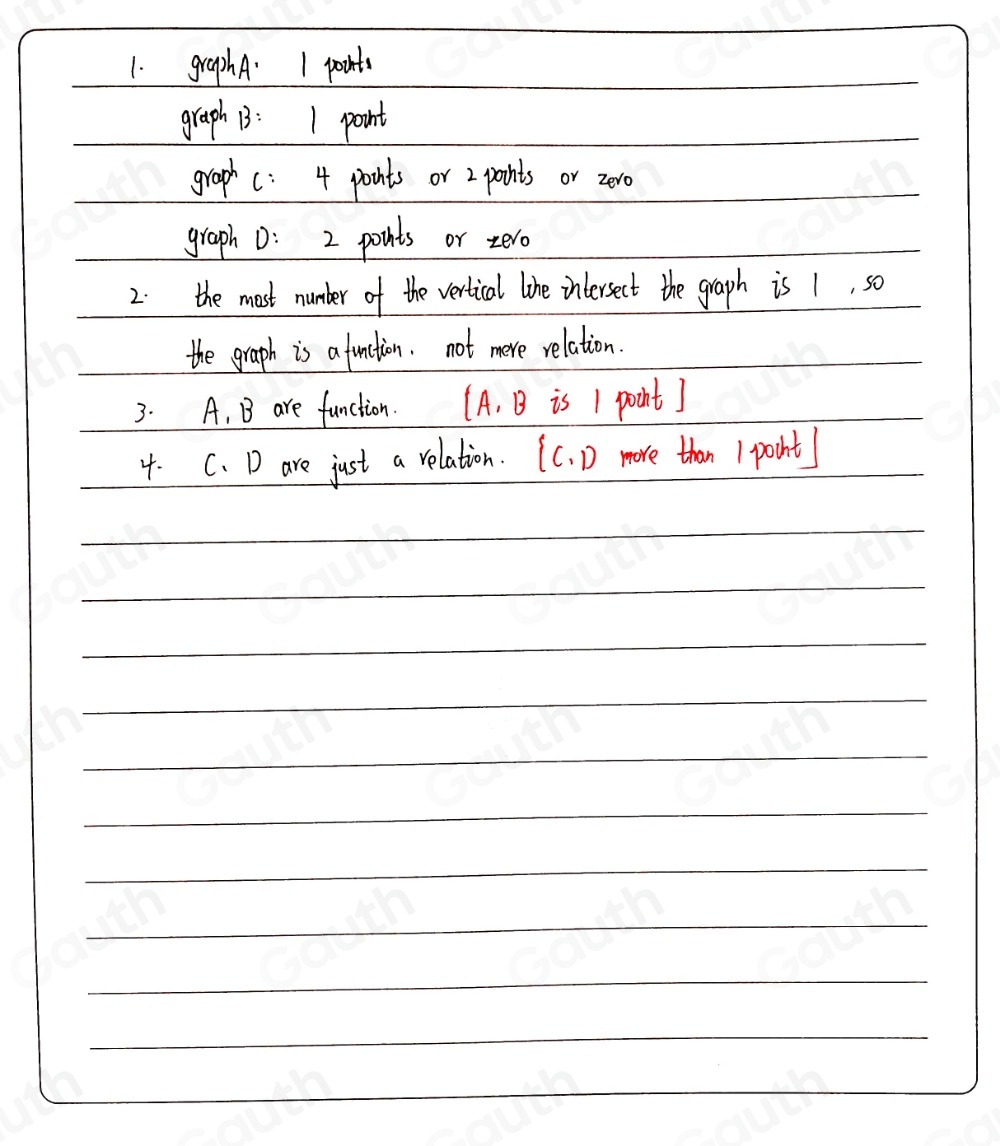 1. graph A. 1 points
graph B: 1 point
graph C: 4 points or 2 points or zero
graph D: 2 points or zero
2. the most number of the vertical line intersect the graph is 1, so
the graph is a function. not mere relation.
3. A, B are function. [A, B is 1 point]
4. C, D are just a relation. [C, D more than 1 point]
Gauth